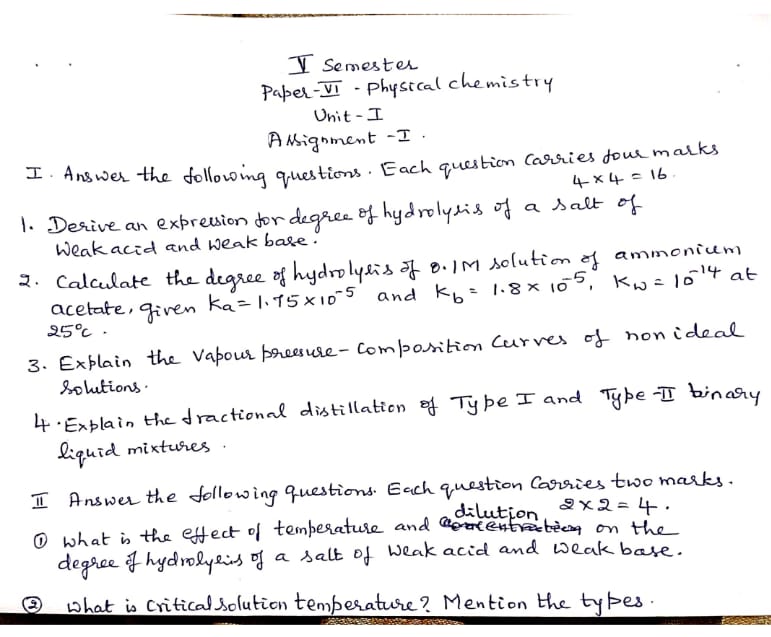 V Semester
Paper-VI - Physical chemistry
Unit - I
Assignment - I .
I . Answer the following questions . Each question carries four marks
4 x 4 = 16 .
1. Derive an expression for degree of hydrolysis of a salt of
Weak acid and weak base .
2. Calculate the degree of hydrolysis of 0.1M solution of ammonium
acetate, given Ka = 1.75 x 10⁻⁵ and Kb = 1.8 x 10⁻⁵, Kw = 10⁻¹⁴ at
25°c .
3. Explain the Vapour pressure - Composition Curves of non ideal
Solutions .
4. Explain the fractional distillation of Type I and Type -II binary
liquid mixtures .
II Answer the following questions. Each question Carries two marks .
2 x 2 = 4 .
① what is the effect of temperature and dilution on the
degree of hydrolysis of a salt of weak acid and weak base.
② what is Critical Solution temperature? Mention the types .